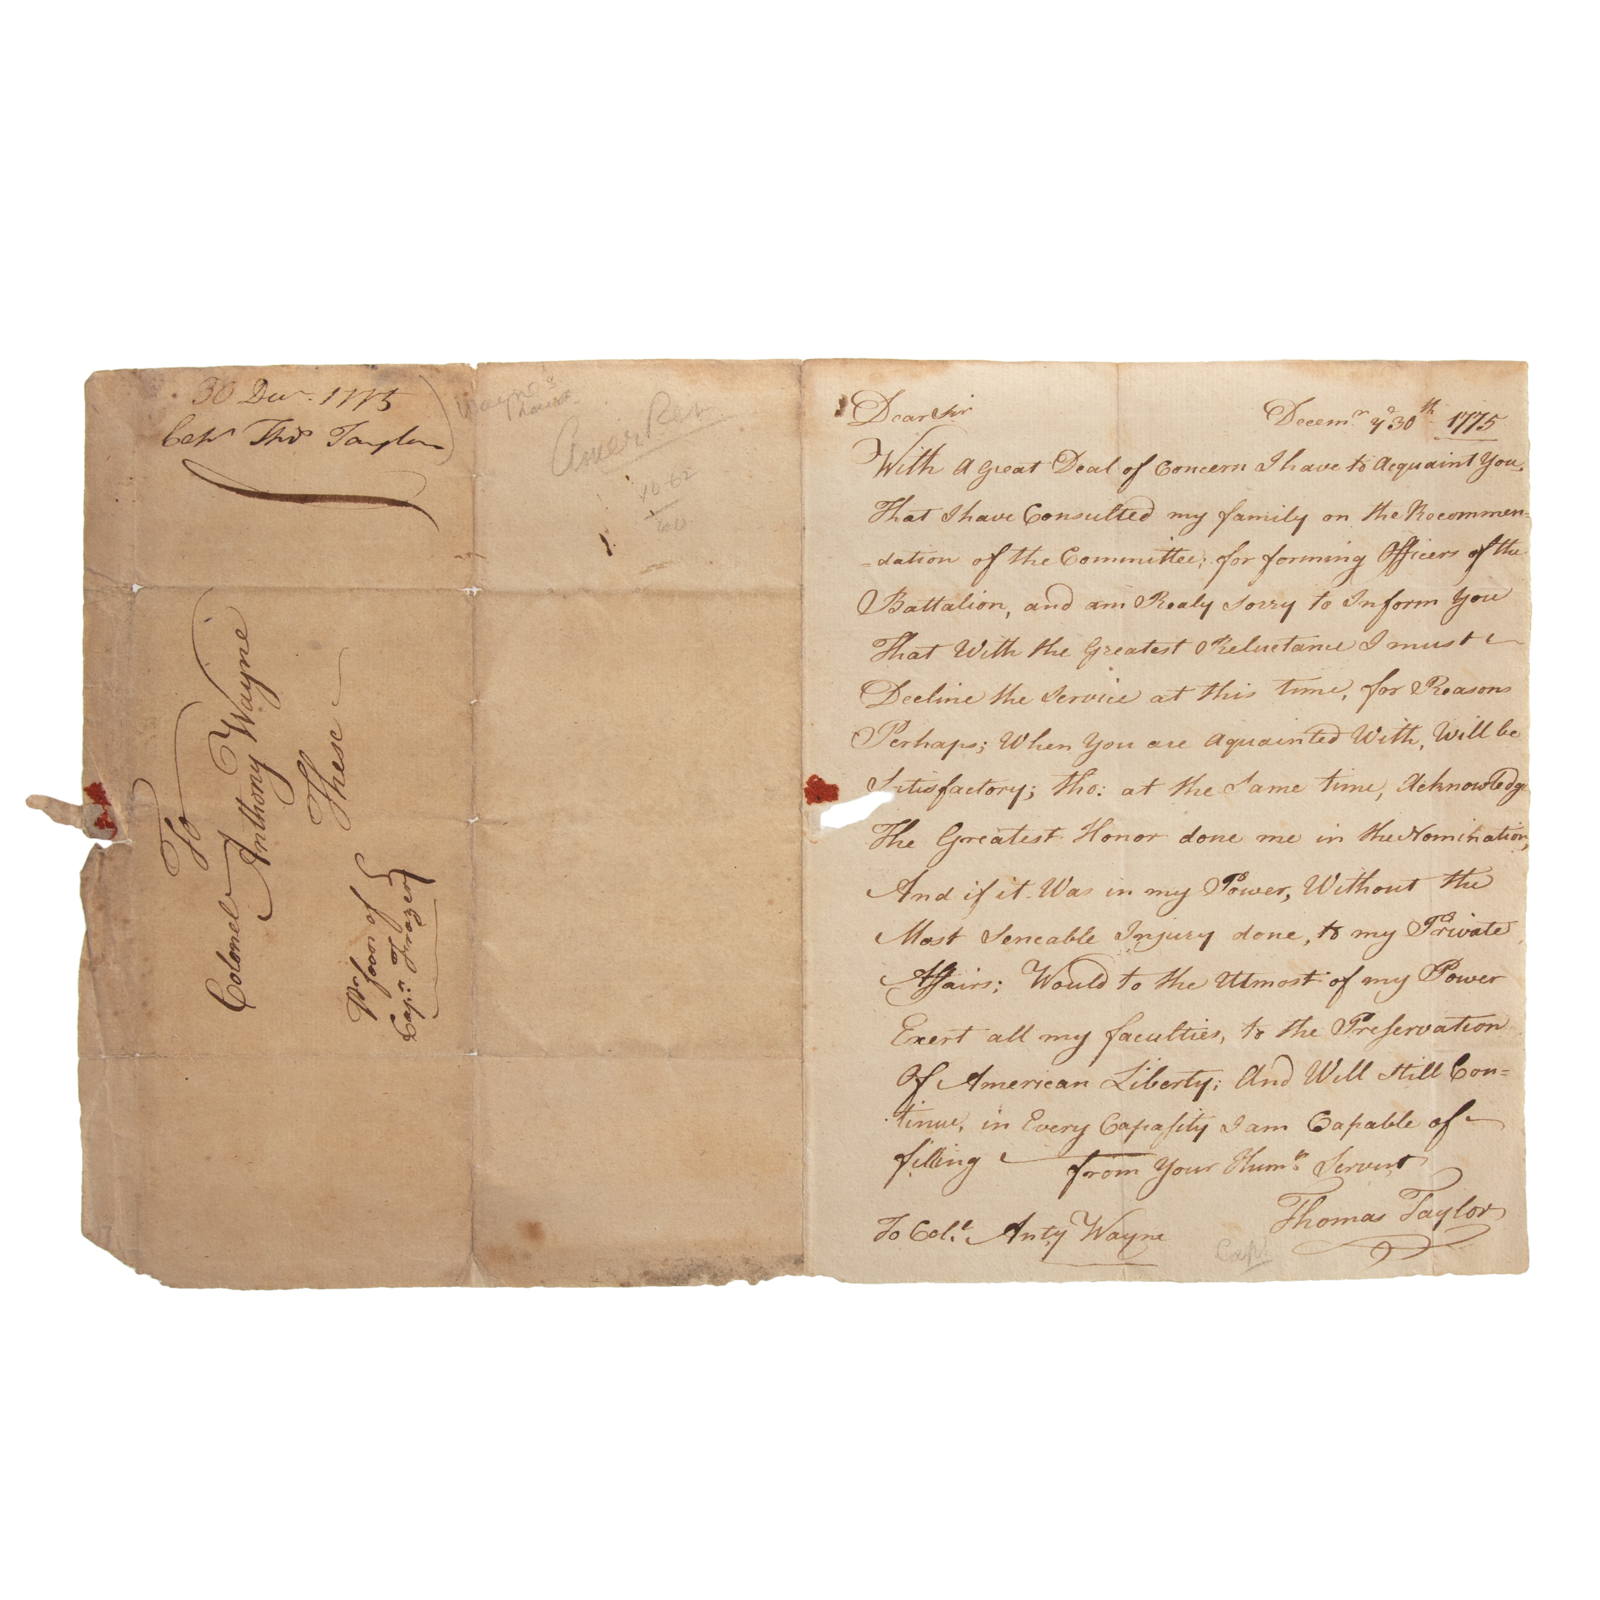 30 Decr. 1775
Capn Thos Taylor
To
Colonel
Anthony Wayne
These
Pr favor of
Capn: Frazer
Amer Rev
Dear Sir
Decemr ye 30th 1775
With a Great Deal of Concern I have to Acquaint You,
That I have Consulted my family on the Recommen=
=dation of the Committee; for forming Officers of the
Battalion, and am Realy Sorry to Inform You
That With the Greatest Reluctance I must
Decline the Service at this time, for Reasons
Perhaps; When You are Aquainted With, Will be
Satisfactory; tho: at the Same time, Acknowledg
The Greatest Honor done me in the Nomination,
And if it Was in my Power, Without the
Most Senceable Injury done, to my Private
Affairs; Would to the Utmost of my Power
Exert all my faculties, to the Preservation
Of American Liberty; And Will Still Con=
tinue, in Every Capassity I am Capable of
filling from Your Humle Servent
Thomas Taylor
To Coll. Anty Wayne
Capt